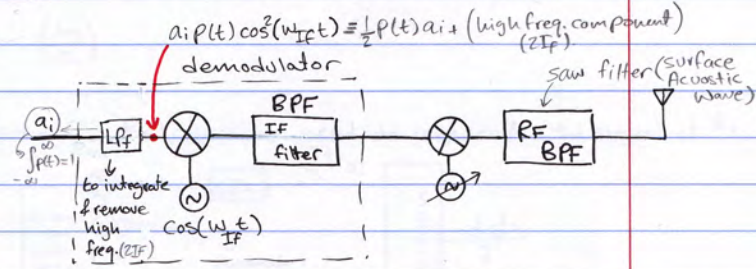 aip(t)cos²(w_IF t) ≡ ½ p(t) ai + (high freq. component)
(2IF)
demodulator
saw filter (surface
Acuostic
wave)
BPF
ai
LPf
IF
filter
RF
BPF
∫p(t)=1
∞
-∞
to integrate
& remove
high
freq.(2IF)
cos(w_IF t)